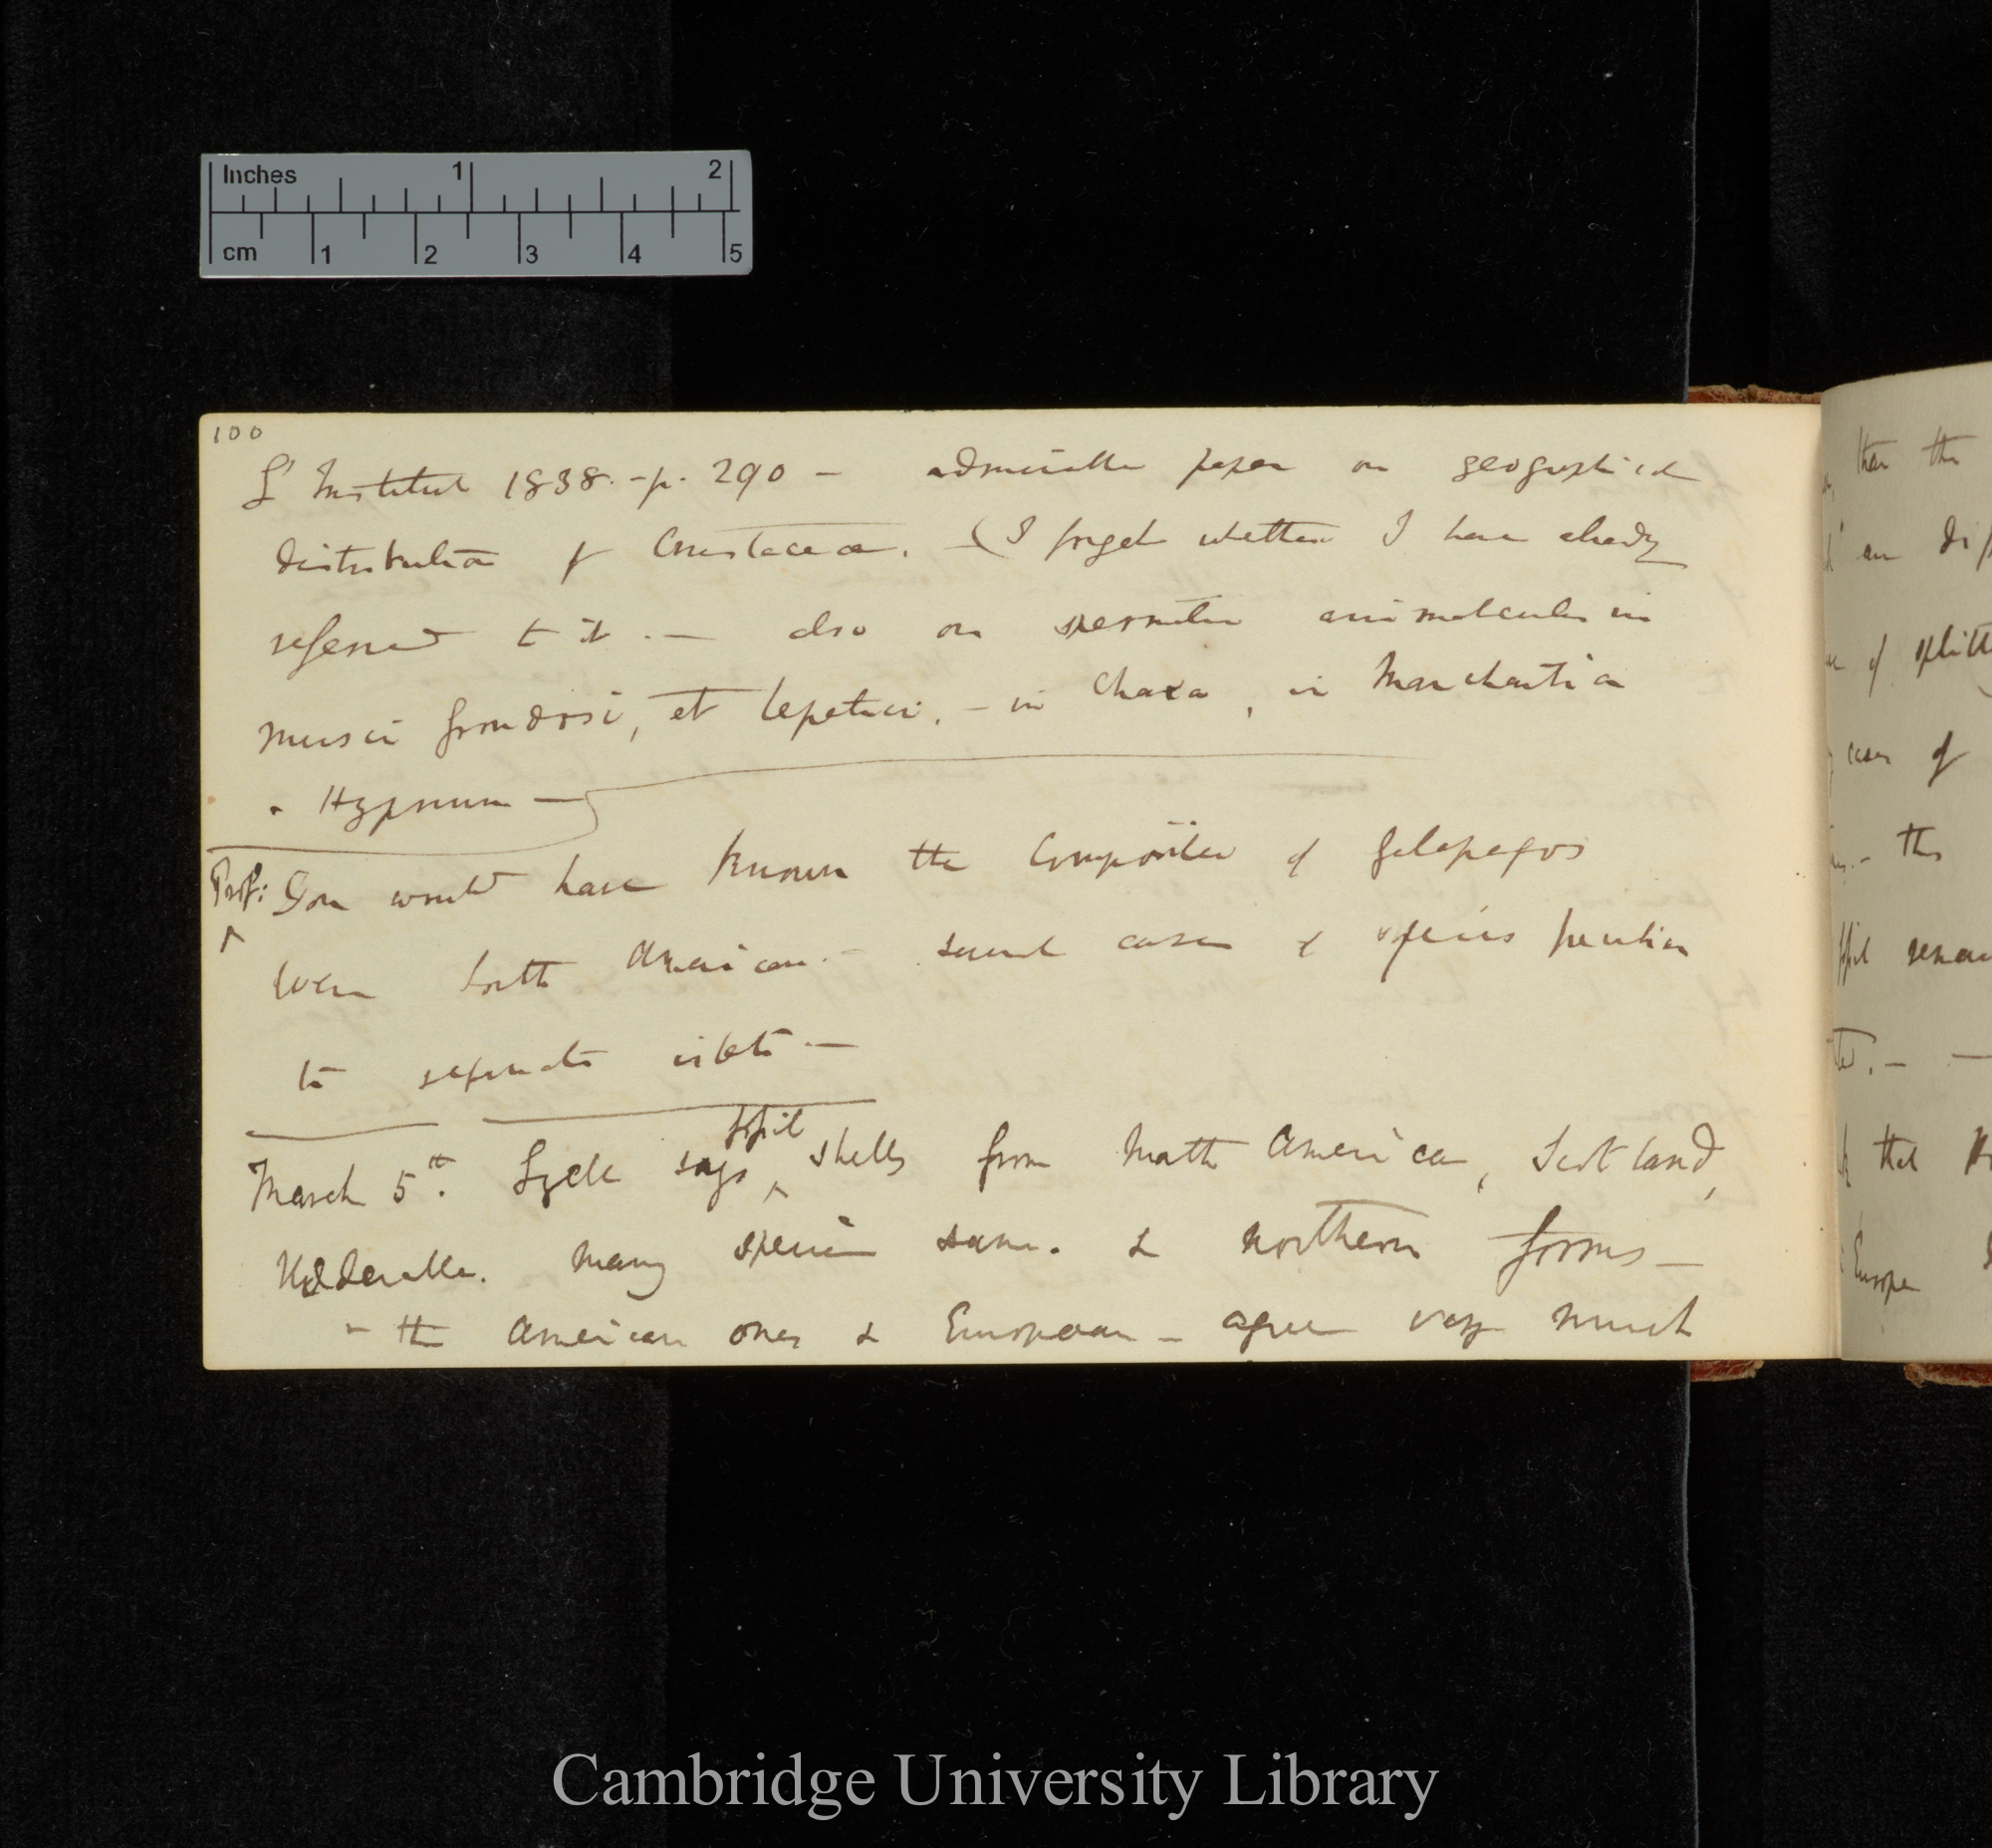 Inches 1 2
cm 1 2 3 4 5
100
L'Institut 1838. - p. 290 — admirable paper on geographical
distribution of Crustaceae. — (I forget whether I have already
referred to it. — also on spermatic animalcules in
musci frondosi, et hepatici. — in Chara, in Marchantia
& Hypnum —
Prof: Don would have known the Compositae of Galapagos
were South American. — several cases of species peculiar
to separate islets. —
March 5th. Lyell says fossil shells from North America, Scotland,
Uddevalla. many species same. & northern forms —
— the American ones & European — agree very much
than the
an
of splitt
case of
the
fossil
that
Europe
Cambridge University Library